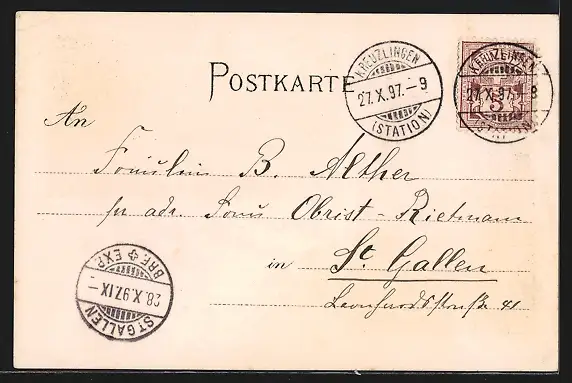 POSTKARTE
KREUZLINGEN
27.X.97.-9
(STATION)
KREUZLINGEN
27.X.97.-8
(STATION)
5
An
Fräulein B. Alther
pr adr Frau Obrist-Rietmann
in St. Gallen
Leonhardsstraße 41
ST GALLEN
28.X.97.IX-
BRF. EXP.